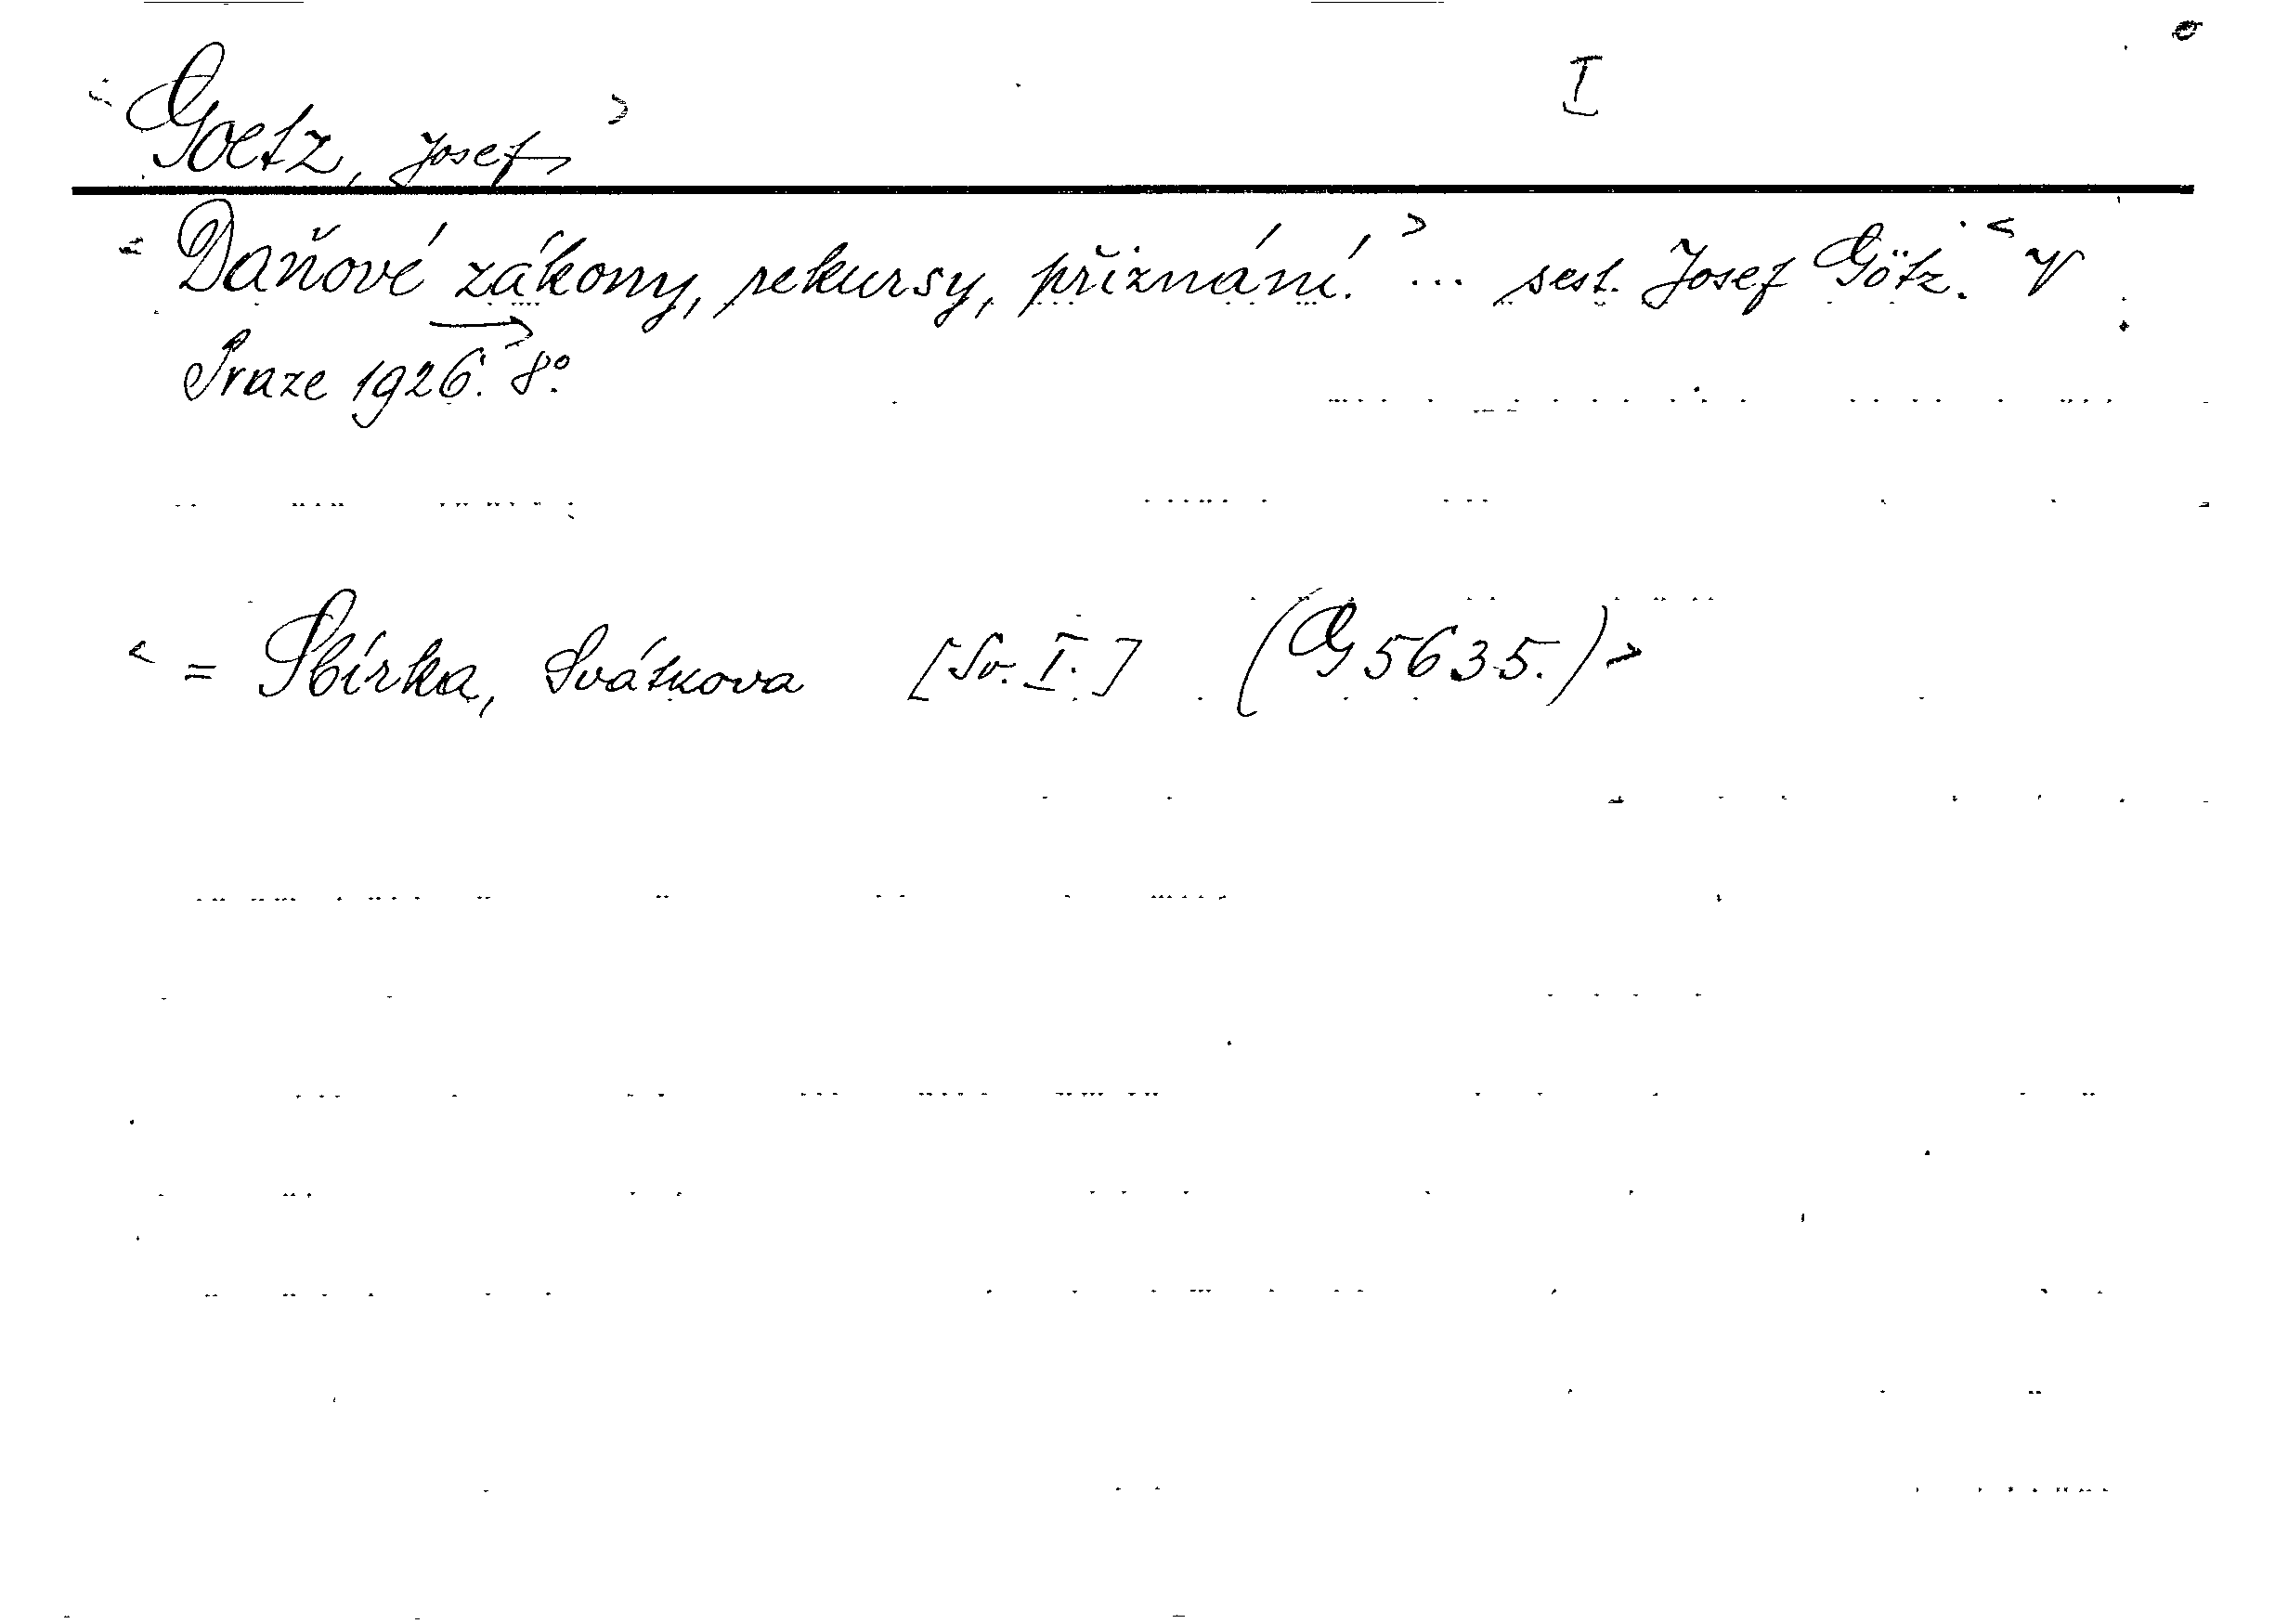 <Goetz, Josef> I
<Daňové zákony, rekursy, přiznání.> ... sest. Josef Götz. < V
Praze 1926. 8°.>
< = Sbírka, Svátkova [Sv. I.] (G 5635.)>